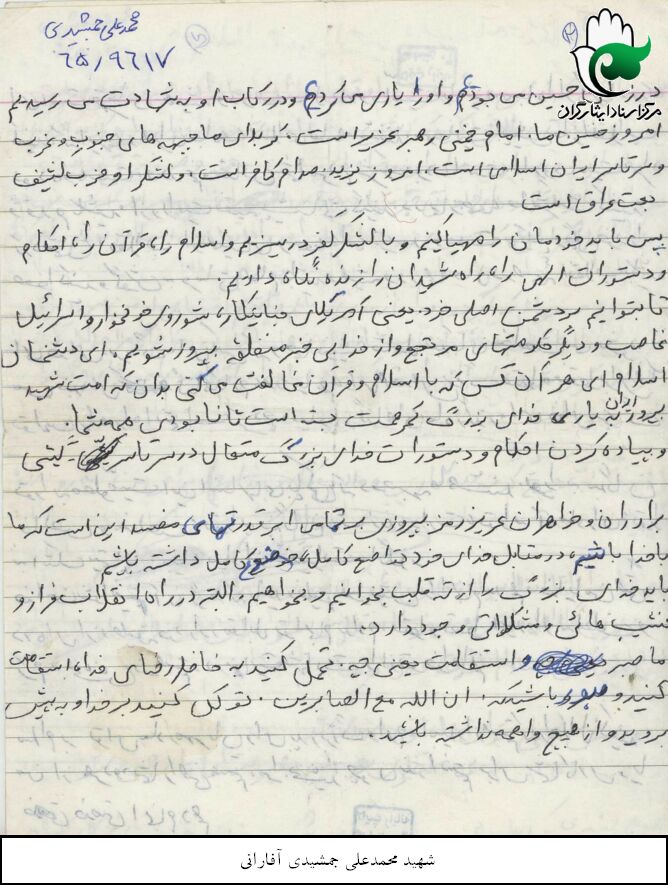 محمدعلی جمشیدی
۶۵/۹۶۱۷
مرکز اسناد ایثارگران
در زمان حسین می بودیم و او را یاری می کردیم و در رکاب او به شهادت می رسیدیم
امروز حسین ما، امام خمینی رهبر عزیز است. کربلای ما جبهه های جنوب و غرب
و سرتاسر ایران اسلامی است، امروز یزید، صدام کافر است، و لشکر او حزب کثیف
بعث عراق است
پس باید خودمان را مهیا کنیم و با لشکر کفر بستیزیم و اسلام را، قرآن را، احکام
و دستورات الهی را، راه شهیدان را زنده نگاه داریم.
تا بتوانیم بر دشمن اصلی خود یعنی آمریکای جنایتکار، شوروی خونخوار و اسرائیل
غاصب و دیگر حکومتهای مرتجع و از خدا بی خبر منطقه پیروز شویم. ای دشمنان
اسلام ای هر آن کس که با اسلام و قرآن مخالفت می کنی بدان که امت شهید
پرور ایران به یاری خدای بزرگ کمر همت بسته است تا نابودی همه شما.
و پیاده کردن احکام و دستورات خدای بزرگ متعال در سرتاسر گیتی
برادران و خواهران عزیز رمز پیروزی بر تمامی ابرقدرتهای مفسد این است که ما
با خدا باشیم، در مقابل خدای خود تواضع کامل، خضوع کامل داشته باشیم
باید خدای بزرگ را از ته قلب بخوانیم و بخواهیم، البته در راه انقلاب فراز و
نشیب هائی و مشکلاتی وجود دارد.
ما صبر و استقامت یعنی چه. تحمل کنید به خاطر رضای خدا، استقامت
کنید و صبور باشید که. ان الله مع الصابرین. توکل کنید بر خدا و به پیش
بروید و از هیچ واهمه نداشته باشید.
شهید محمدعلی جمشیدی آفارانی